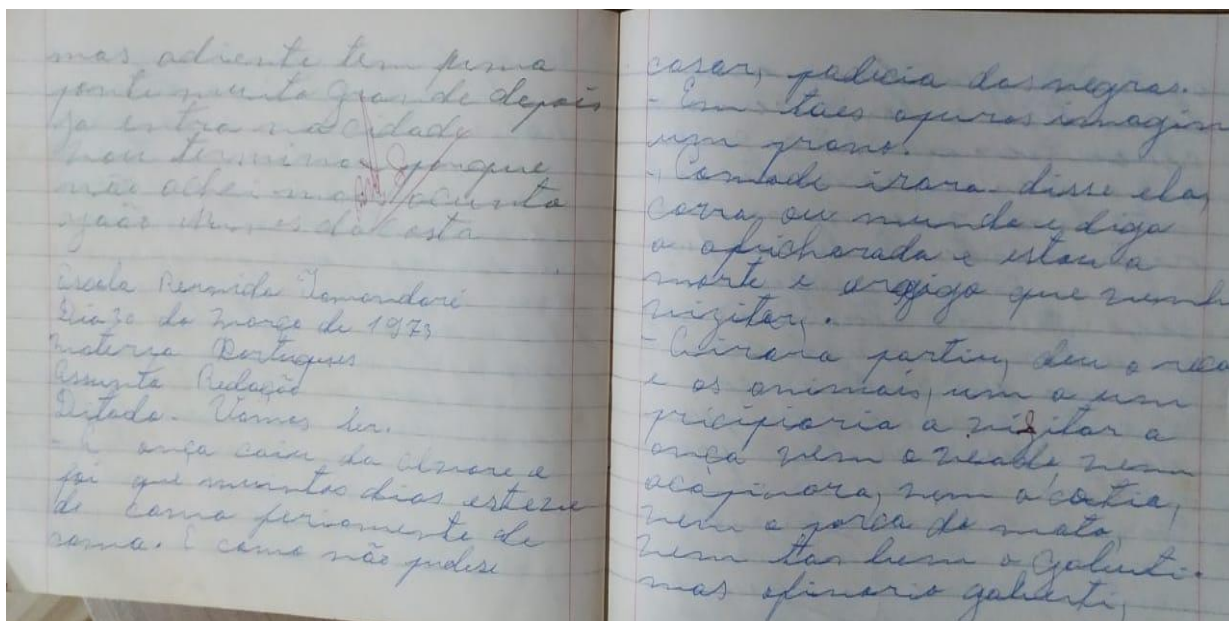 mas adiente tem huma
ponte munto grande depois
ja entra na cidade
nou termino porque
não achei mas acunto
joão Nunes da Costa
Escola Reunida Tamandaré
Dia 30 do março de 1973
materia Portugues
assunto Redação
Ditado. Vamos ler.
- A onça caiu da alvore e
foi que muintos dias esteve
de cama feriamente de
rama. E como não pudese
casar, padicia das negras.
- Em taes apuros imagin
um prano.
- Comade irara. disse ela,
corra, ou mundo e diga
a a estou a
morte e que venh
vizitar.
- A irara partiu, deu o reca
e os animais, um a um
pricipiaria a vizitar a
onça vem o veado vem
acapivara, vem a cotia,
vem o porco do mato,
vem tan bem o gabuti.
mas ofinorio gabuti,